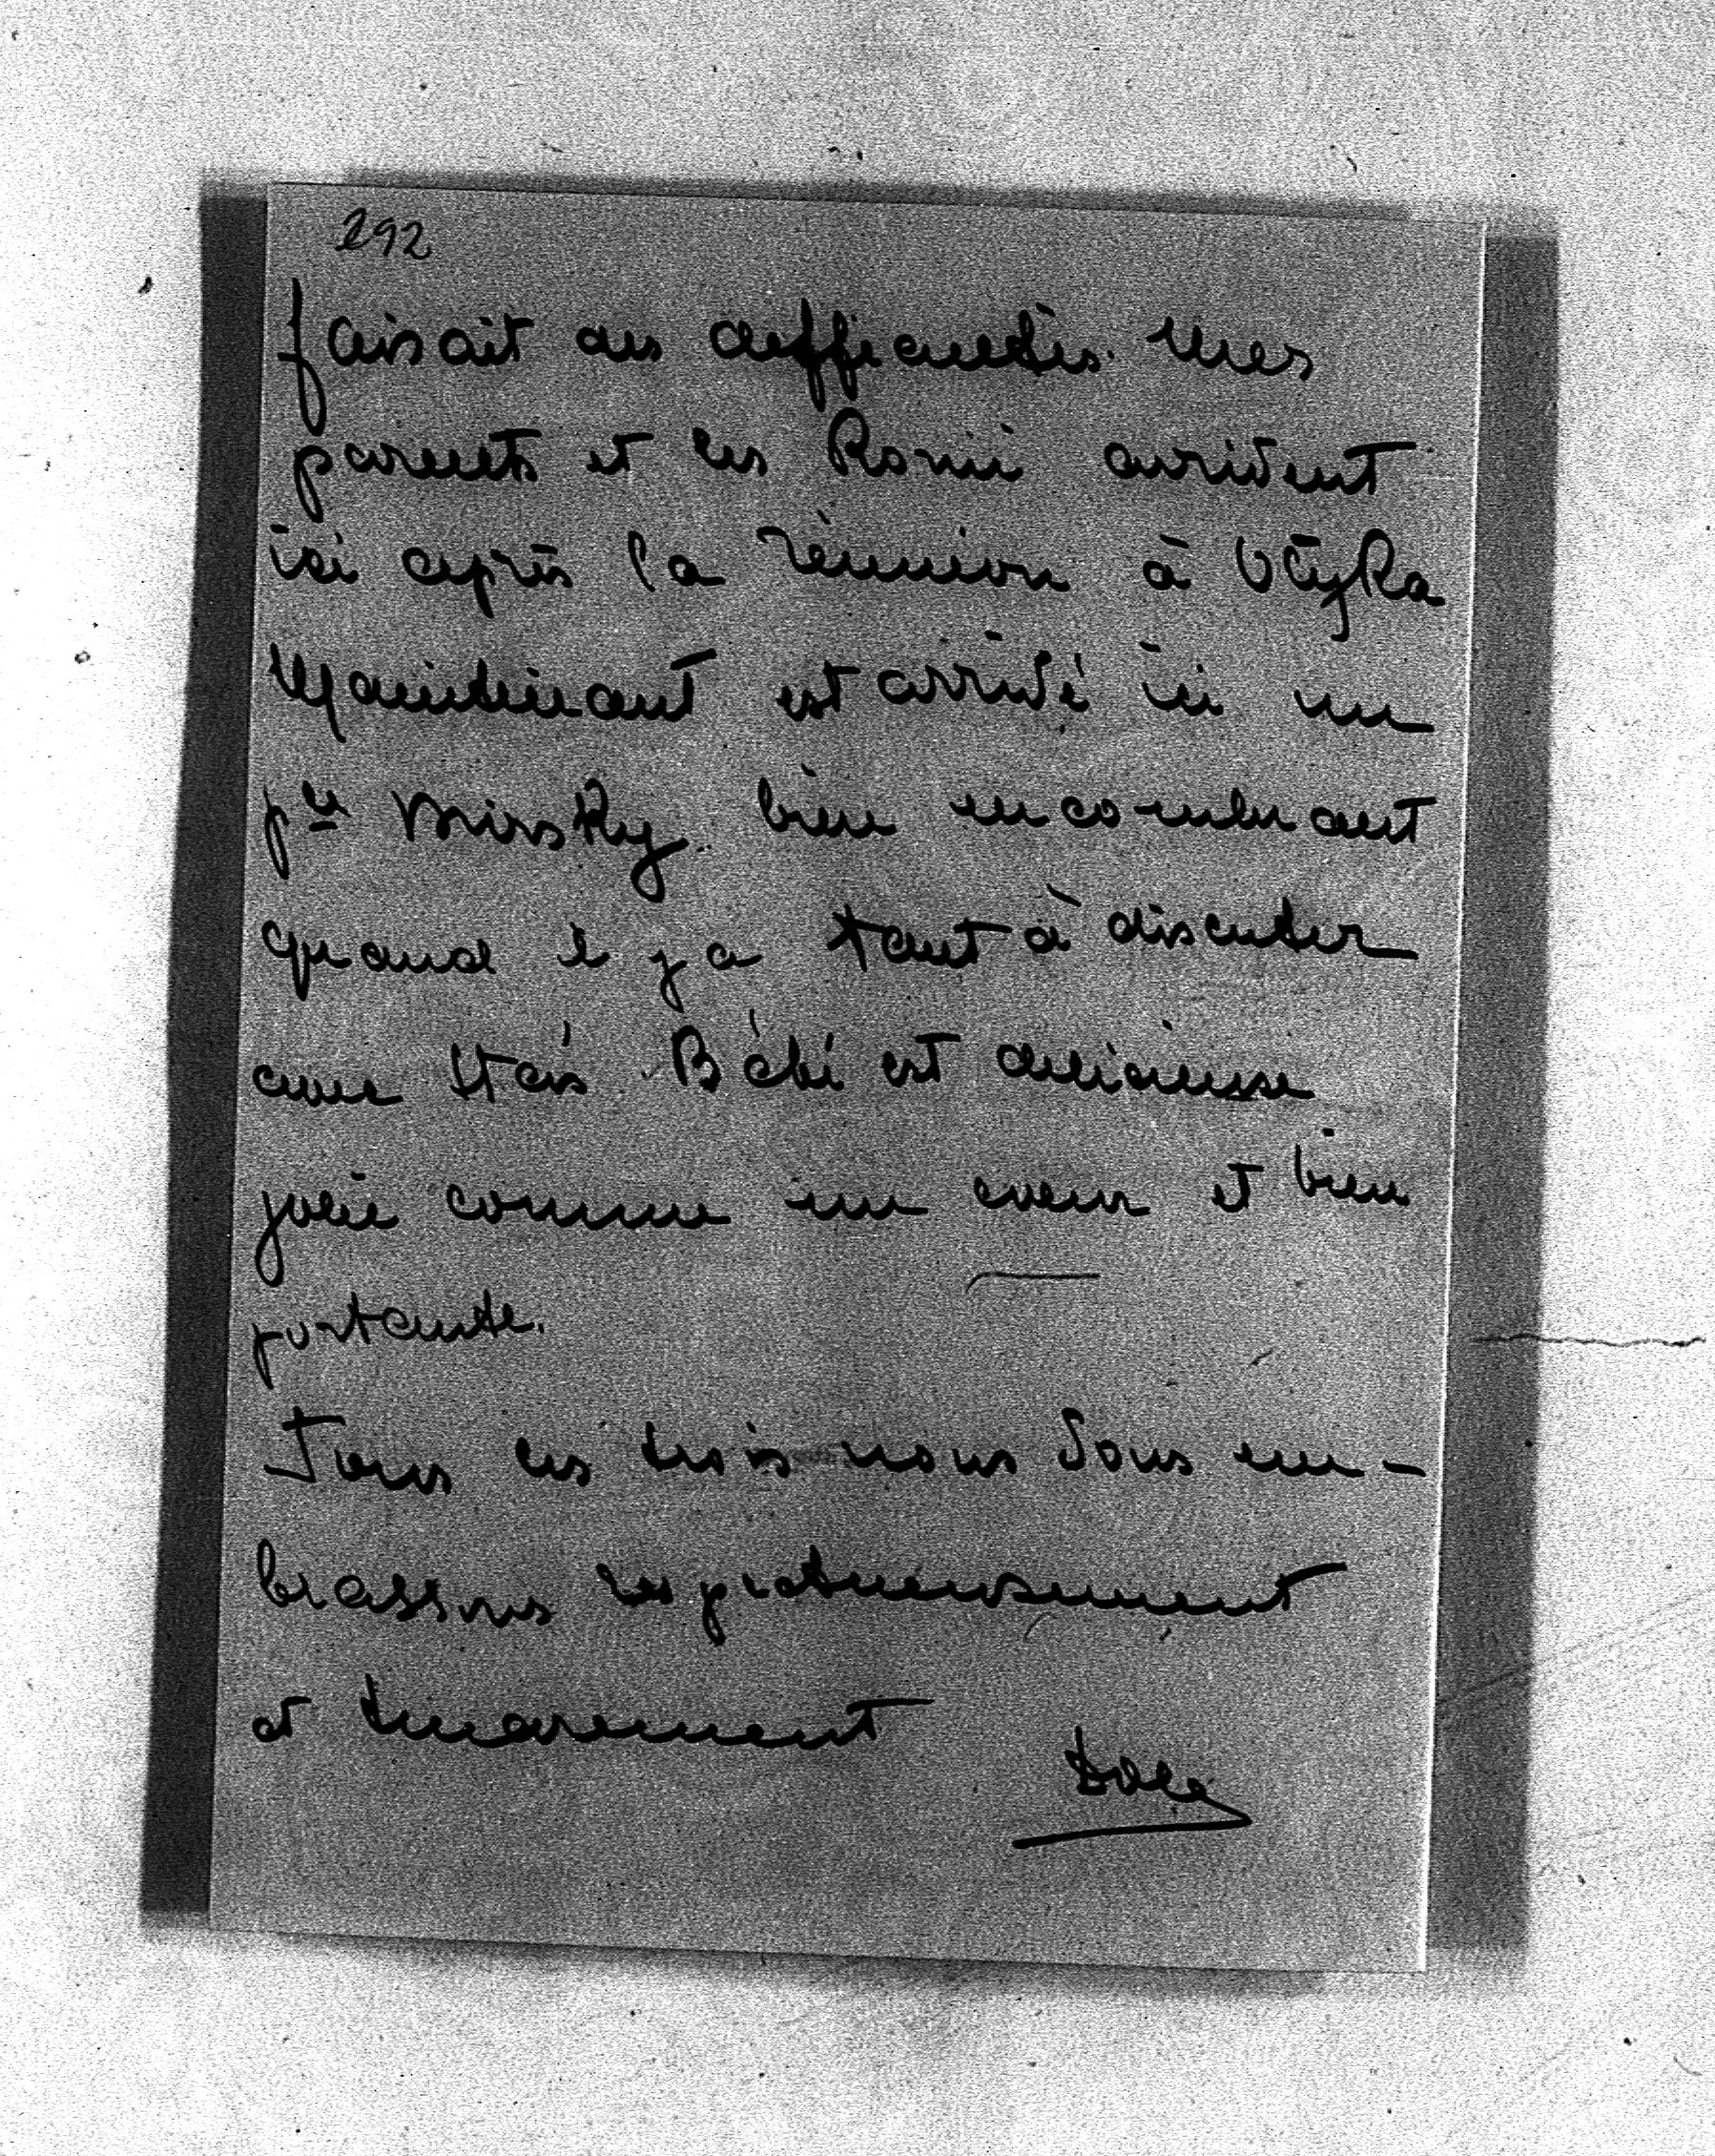 292
faisait des difficultés. Mes
parents et les Ronii arrivent
ici après la réunion à Olyka
Maintenant est arrivé ici un
pce Mirsky bien encombrant
quand il y a tant à discuter
avec Stas. Bébé est délicieuse
jolie comme un coeur et bien
portante.
Tous les trois nous vous em-
brassons respectueusement
et tendrement